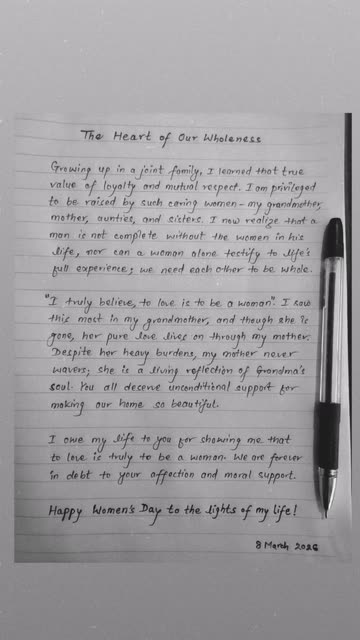 The Heart of Our Wholeness
Growing up in a joint family, I learned that true
value of loyalty and mutual respect. I am privileged
to be raised by such caring women - my grandmother,
mother, aunties, and sisters. I now realize that a
man is not complete without the women in his
life, nor can a woman alone testify to life's
full experience; we need each other to be whole.
"I truly believe, to love is to be a woman". I saw
this most in my grandmother, and though she is
gone, her pure love lives on through my mother.
Despite her heavy burdens, my mother never
wavers; she is a living reflection of Grandma's
soul. You all deserve unconditional support for
making our home so beautiful.
I owe my life to you for showing me that
to love is truly to be a woman. We are forever
in debt to your affection and moral support.
Happy Women's Day to the lights of my life!
8 March 2026